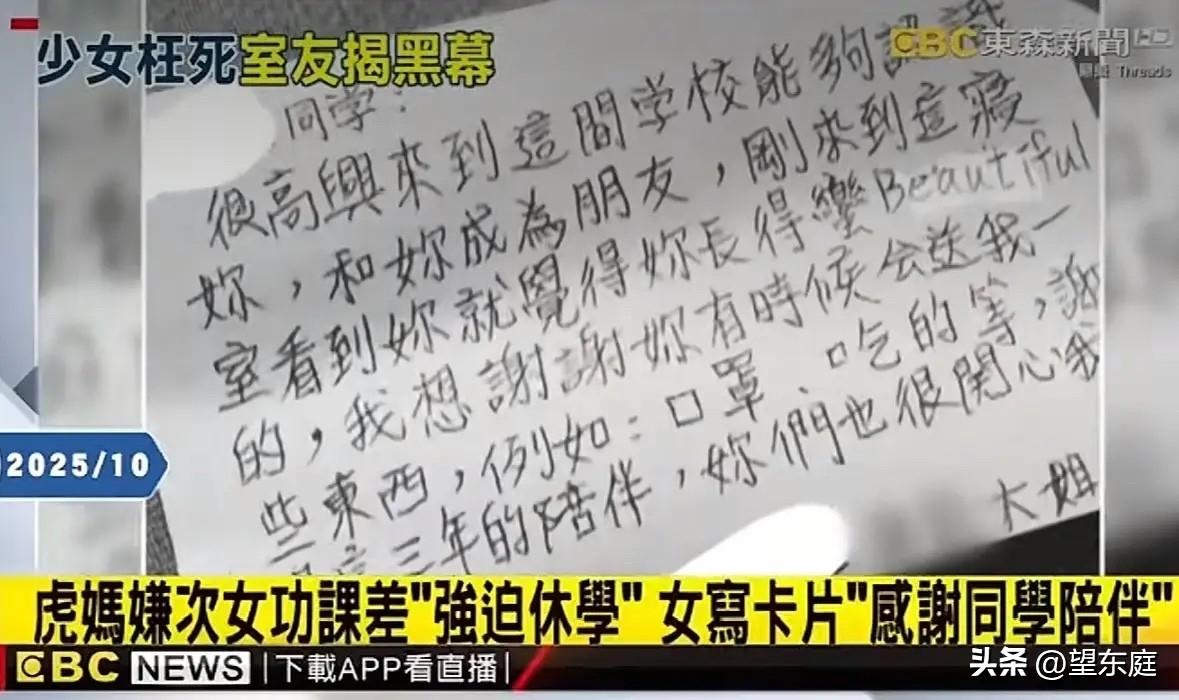 少女枉死室友揭黑幕
EBC 東森新聞
Threads
同学：
很高興來到這間学校能夠認識
妳，和妳成為朋友，剛來到這寢
室看到妳就覺得妳長得蠻Beautiful
的，我想謝謝妳有時候会送我一
些東西，例如：口罩、吃的等，謝
三年的陪伴，妳們也很開心我
大姐
2025/10
虎媽嫌次女功課差"強迫休學" 女寫卡片"感謝同學陪伴"
EBC NEWS 下載APP看直播
头条 @望东庭